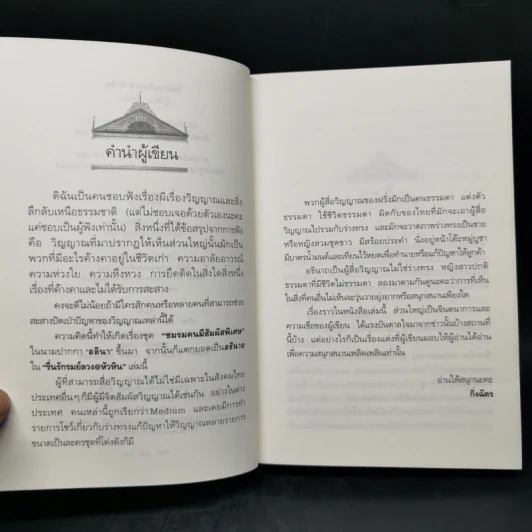 คำนำผู้เขียน
ดิฉันเป็นคนชอบฟังเรื่องผีเรื่องวิญญาณและสิ่ง
ลึกลับเหนือธรรมชาติ (แต่ไม่ชอบเจอด้วยตัวเองนะคะ
แค่ชอบเป็นผู้ฟังเท่านั้น) สิ่งหนึ่งที่ได้ข้อสรุปจากการฟัง
คือ วิญญาณที่มาปรากฏให้เห็นส่วนใหญ่นั้นมักเป็น
พวกที่มีอะไรค้างคาอยู่ในชีวิตเก่า ความอาลัยอาวรณ์
ความห่วงใย ความหึงหวง การยึดติดในสิ่งใดสิ่งหนึ่ง
เรื่องที่ค้างคาและไม่ได้รับการสะสาง
คงจะดีไม่น้อยถ้ามีใครสักคนหรือหลายคนที่สามารถช่วย
สะสางปัดเป่าปัญหาของวิญญาณเหล่านี้ได้
ความคิดนี้ทำให้เกิดเรื่องชุด "ชมรมคนมีสัมผัสพิเศษ"
ในนามปากกา "อธีนา" ขึ้นมา จากนั้นก็แตกยอดเป็นอธินาถ
ใน "รื่นรักรมย์ลวง@หัวหิน" เล่มนี้
ผู้ที่สามารถสื่อวิญญาณได้ไม่ใช่มีเฉพาะในสังคมไทย
ประเทศอื่นๆ ก็มีผู้มีจิตสัมผัสวิญญาณได้เช่นกัน อย่างในต่าง
ประเทศ คนเหล่านี้ถูกเรียกว่า Medium และเคยมีการทำ
รายการโชว์เกี่ยวกับร่างทรงแก้ปัญหาให้วิญญาณหลายรายการ
ขนาดเป็นละครชุดที่โด่งดังก็มี
พวกผู้สื่อวิญญาณของฝรั่งมักเป็นคนธรรมดา แต่งตัว
ธรรมดา ใช้ชีวิตธรรมดา ผิดกับของไทยที่มักจะเอาผู้สื่อ
วิญญาณไปรวมกับร่างทรง และมักจะวาดภาพร่างทรงเป็นชาย
หรือหญิงสวมชุดขาว มีสร้อยประคำ นั่งอยู่หน้าโต๊ะหมู่บูชา
มีบาตรน้ำมนต์และเทียนไว้หยดเพื่อทำนายหรือแก้ปัญหาให้ลูกค้า
อธินาถเป็นผู้สื่อวิญญาณไม่ใช่ร่างทรง หญิงสาวปกติ
ธรรมดาที่มีชีวิตไม่ธรรมดา ลองมาตามกันดูนะคะว่าการที่เห็น
ในสิ่งที่คนอื่นไม่เห็นจะวุ่นวายยุ่งยากหรือสนุกสนานเพียงใด
เรื่องราวในหนังสือเล่มนี้ ส่วนใหญ่เป็นจินตนาการและ
ความเชื่อของผู้เขียน ได้แรงบันดาลใจมาจากข่าวในบ้านสถานที่
นี้บ้าง แต่อย่างไรก็เป็นเรื่องแต่งที่ผู้เขียนมอบให้ผู้อ่านได้อ่าน
เพื่อความสนุกสนานเพลิดเพลินเท่านั้น
อ่านให้สนุกนะคะ
กิ่งฉัตร